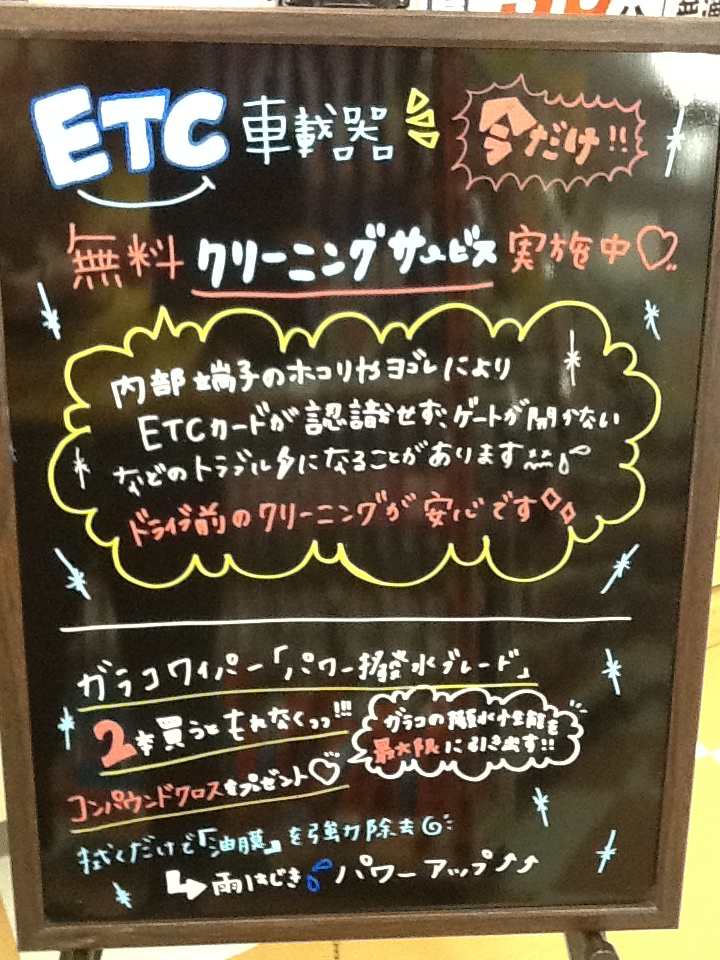 ETC 車載器 今だけ!!
無料 クリーニングサービス 実施中♡
内部端子のホコリやヨゴレにより
ETCカードが認識せず、ゲートが開かない
などのトラブルになることがあります
ドライブ前のクリーニングが安心です
ガラコワイパー「パワー撥水ブレード」
2本買うともれなくっっ!!!
コンパウンドクロスをプレゼント♡
ガラコの撥水性能を
最大限に引き出す!!
拭くだけで「油膜」を強力除去
雨はじきパワーアップ⤴⤴